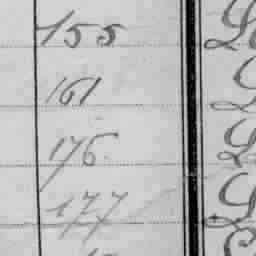 155
161
176
177